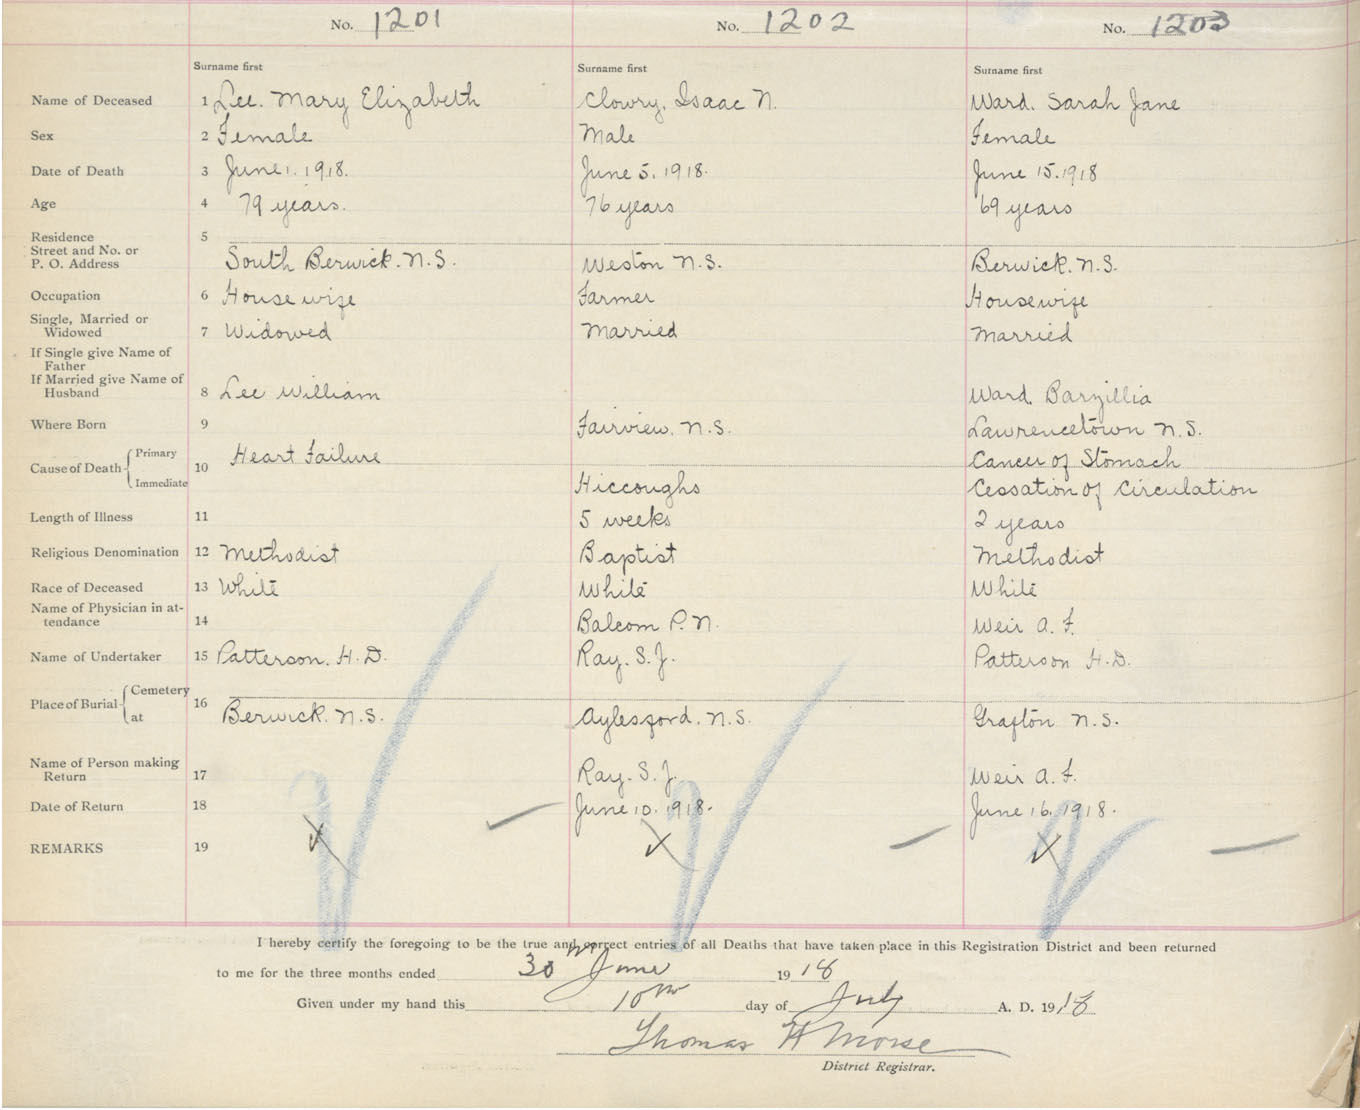 No. 1201 No. 1202 No. 1203
Surname first Surname first Surname first
Name of Deceased 1 Lee. Mary Elizabeth Clowry, Isaac N. Ward. Sarah Jane
Sex 2 Female Male Female
Date of Death 3 June 1. 1918. June 5. 1918. June 15. 1918
Age 4 79 years. 76 years 69 years
Residence 5
Street and No. or
P. O. Address South Berwick. N.S. Weston N.S. Berwick. N.S.
Occupation 6 House wife Farmer Housewife
Single, Married or
Widowed 7 Widowed Married Married
If Single give Name of
Father
If Married give Name of
Husband 8 Lee William Ward. Barzillia
Where Born 9 Fairview. N.S. Lawrencetown N.S.
Cause of Death Primary 10 Heart Failure Cancer of Stomach
Immediate Hiccoughs Cessation of Circulation
Length of Illness 11 5 weeks 2 years
Religious Denomination 12 Methodist Baptist Methodist
Race of Deceased 13 White White White
Name of Physician in at-
tendance 14 Balcom P. N. Weir A. F.
Name of Undertaker 15 Patterson. H. D. Ray. S. J. Patterson H. D.
Place of Burial Cemetery 16
at Berwick. N.S. Aylesford. N.S. Grafton N.S.
Name of Person making
Return 17 Ray. S. J. Weir A. F.
Date of Return 18 June 10. 1918. June 16. 1918.
REMARKS 19
I hereby certify the foregoing to be the true and correct entries of all Deaths that have taken place in this Registration District and been returned
to me for the three months ended 30th June 1918
Given under my hand this 10th day of July A. D. 1918
Thomas H Morse
District Registrar.